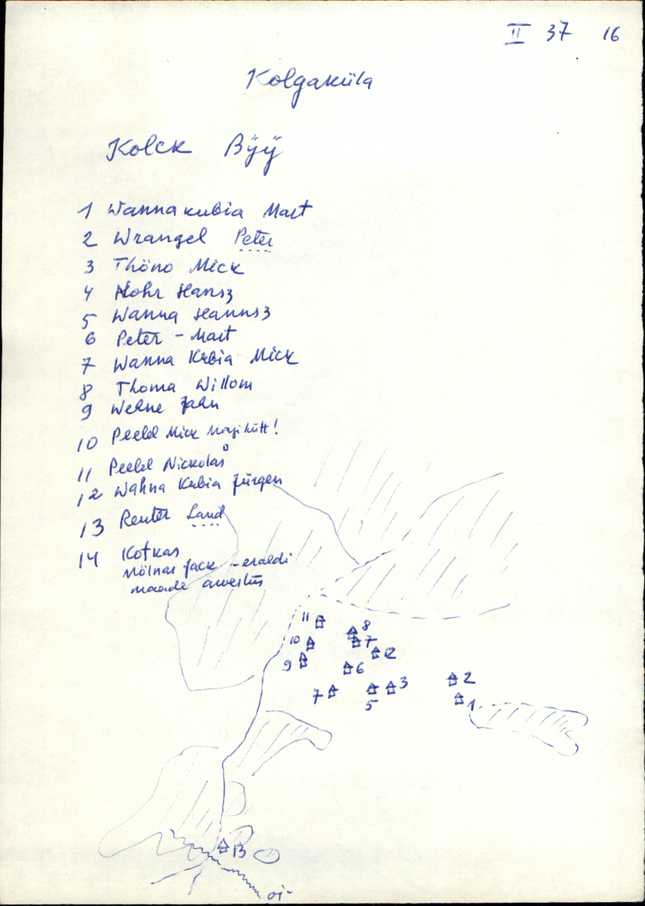 II 37 16
Kolgaküla
Kolck Bÿÿ
1 Wannakubia Mart
2 Wrangel Peter
3 Thöno Mick
4 Mohr Hans3
5 Wanna Hanns3
6 Peter - Mart
7 Wanna Kubia Mick
8 Thoma Willom
9 Wehne Jahn
10 Peeld Mick
11 Peeld Nickolas
12 Wahna Kubia Jürgen
13 Reuter Land
14 Kotkas
Mölnar Jack - eraldi
maade arvestus
11
8
10
7
12
9
6
7
3
2
5
1
13